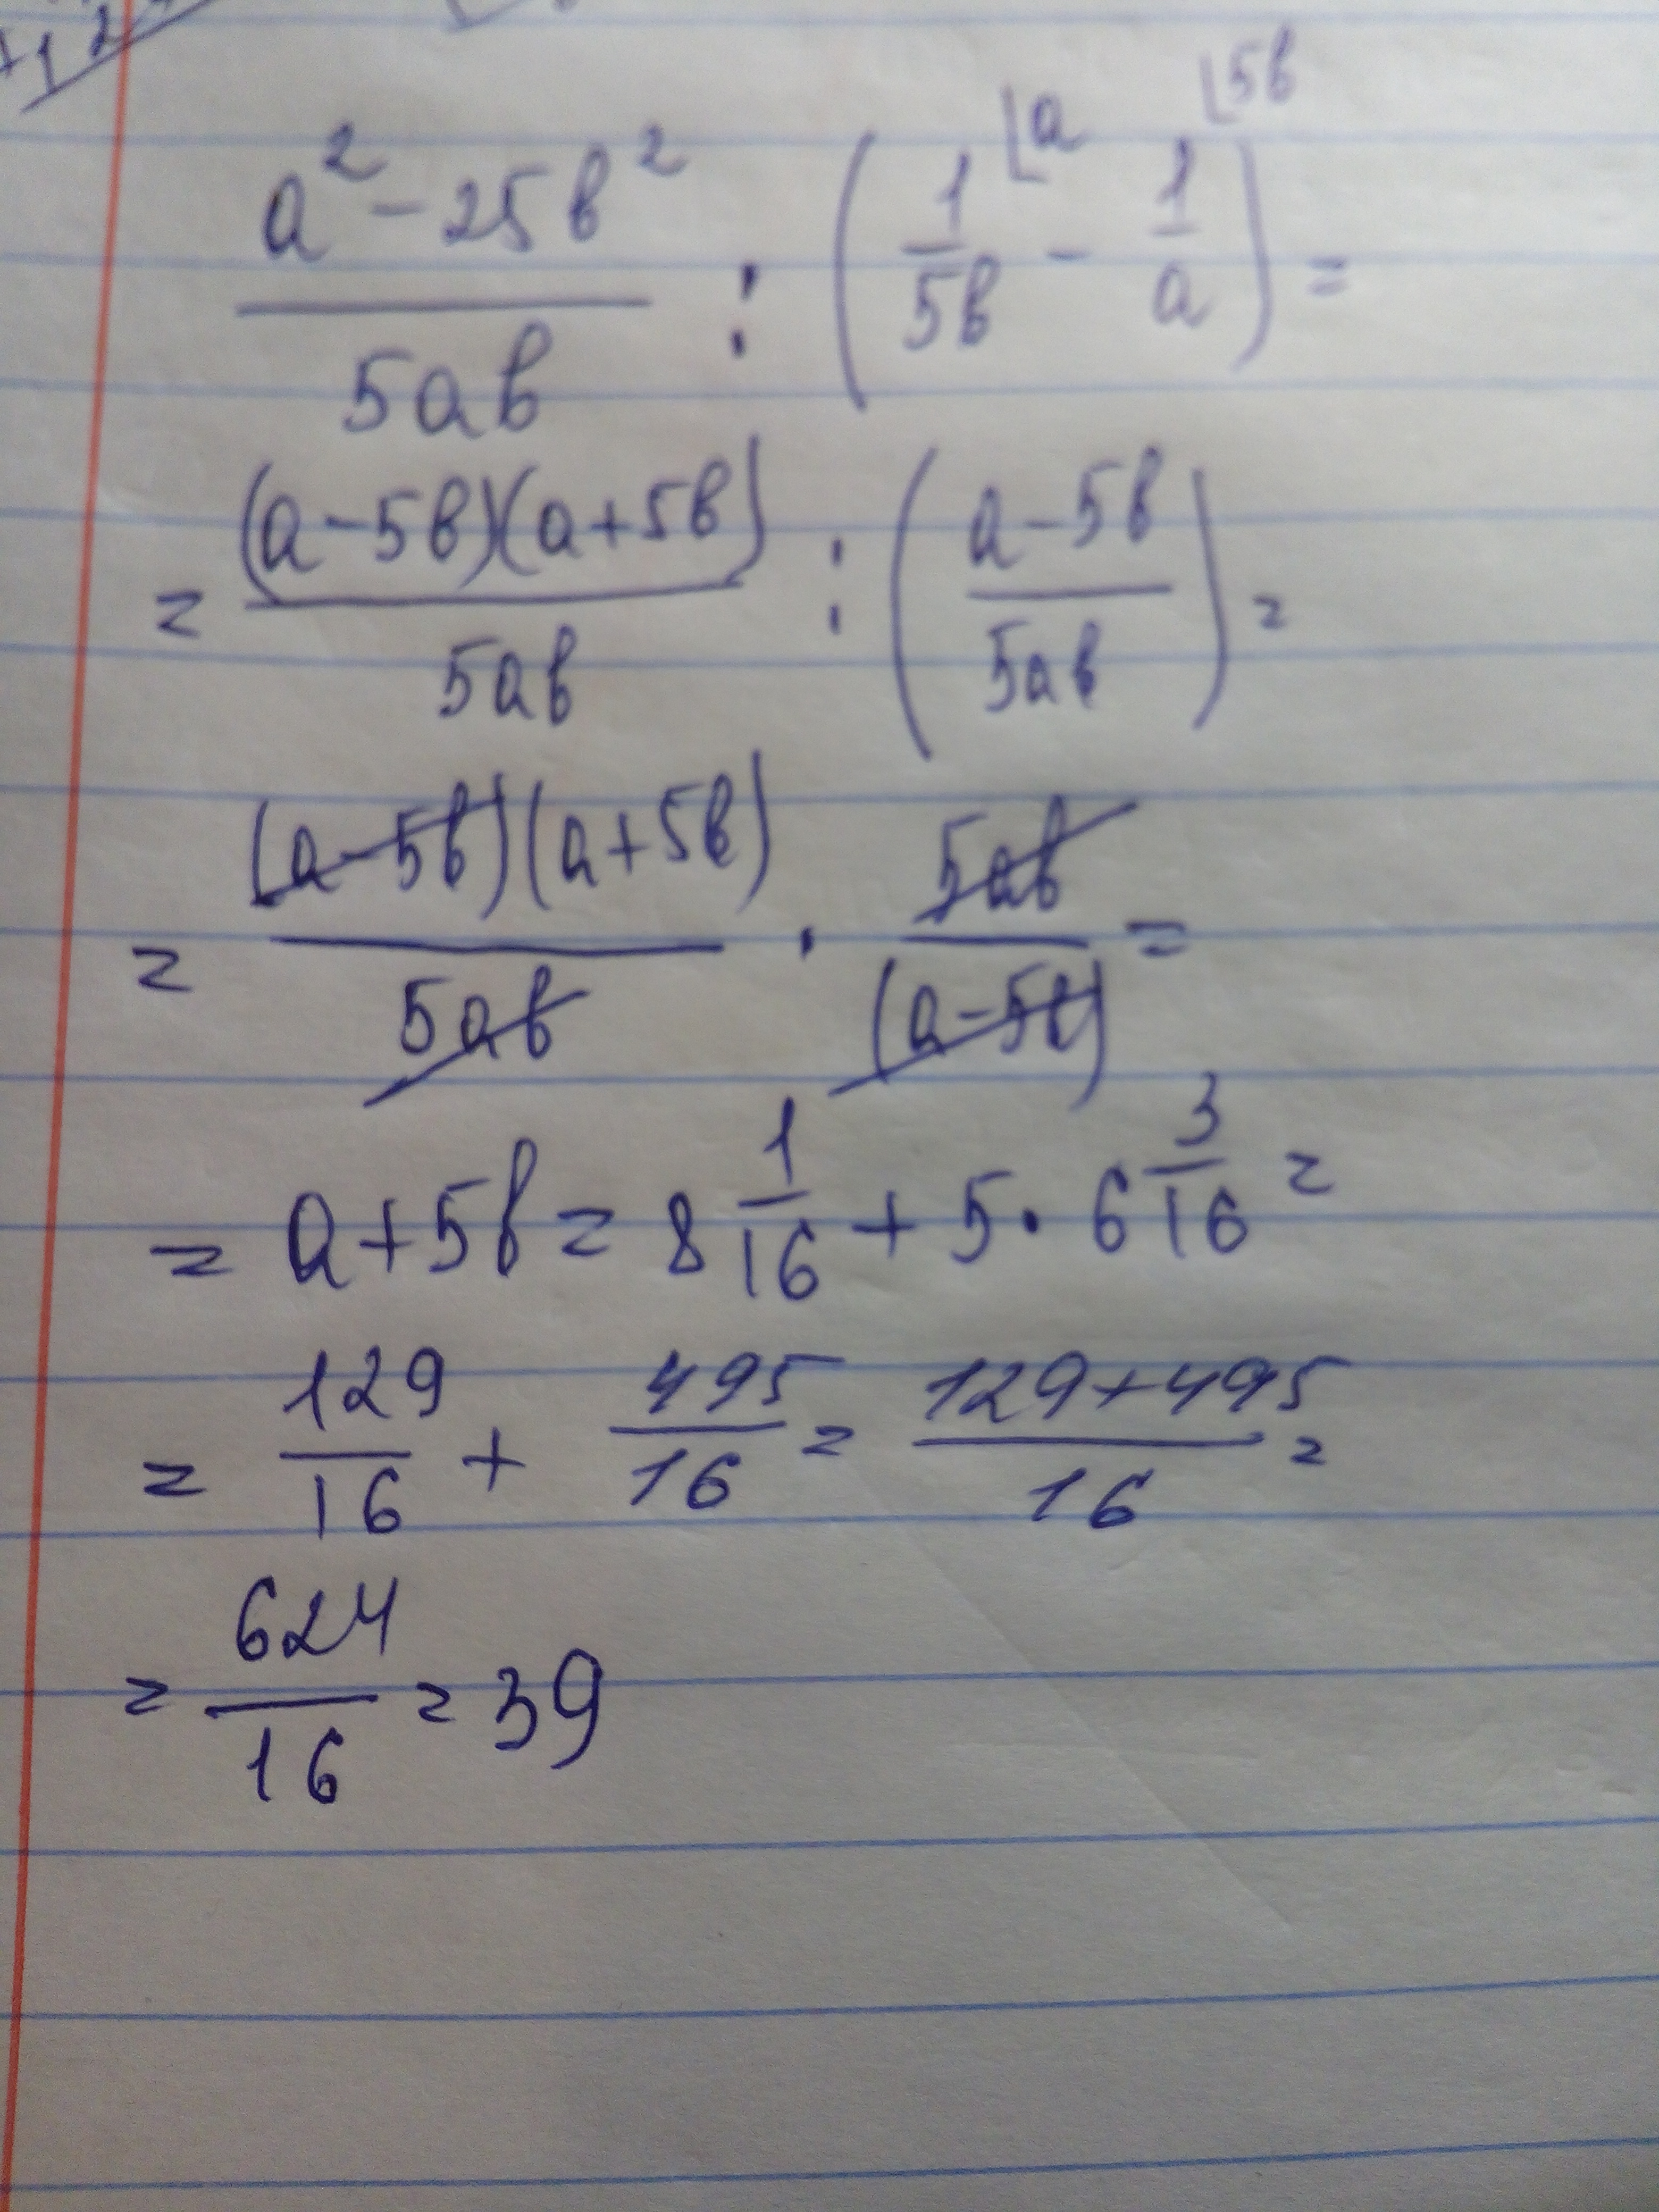 +12
a² - 25b² / 5ab : (1/5b ⌊a - 1/a ⌊5b) =
= (a - 5b)(a + 5b) / 5ab : (a - 5b / 5ab) =
= (a - 5b)(a + 5b) / 5ab · 5ab / (a - 5b) =
= a + 5b = 8 1/16 + 5 · 6 3/16 =
= 129/16 + 495/16 = 129 + 495 / 16 =
= 624/16 = 39